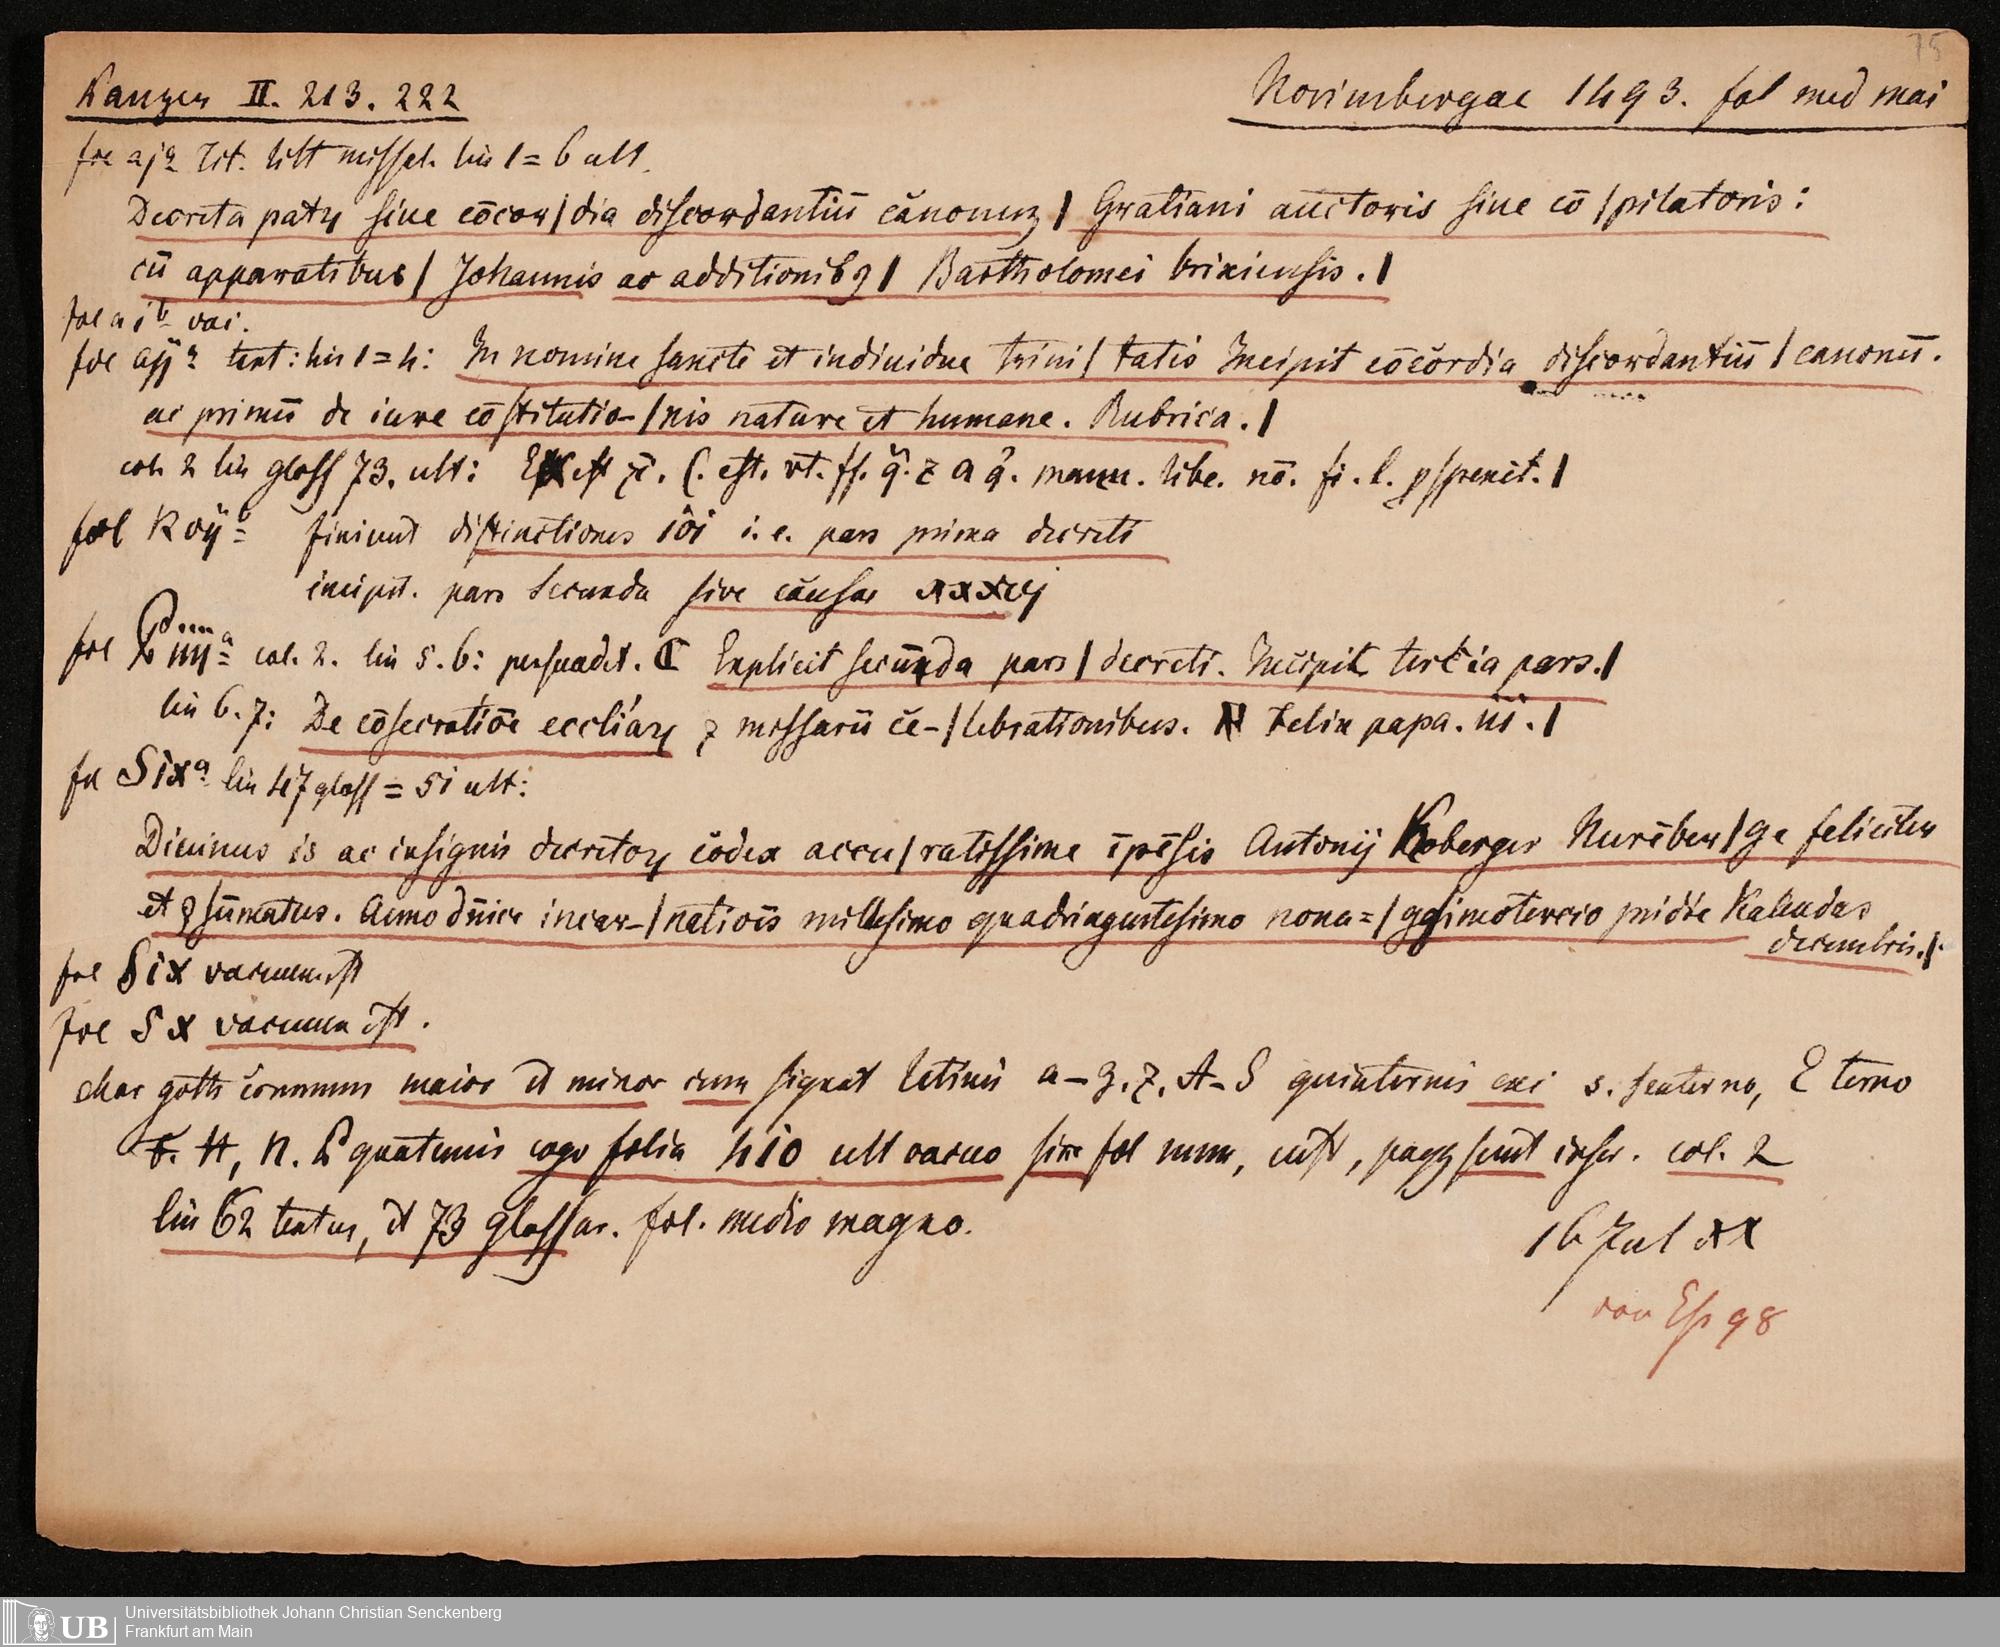 75
Panzer II. 213. 222
Norimbergae 1493. fol med mai
fol aja Tit. litt missal. lin 1=6 ult.
Decreta patꝝ siue cōcor|dia discordantiū cānonuꝫ| Gratiani auctoris siue cō|pilatoris:
cū apparatibus| Johannis ac additionibꝫ| Bartholomei brixiensis.|
fol aib vac.
fol aija text: lin 1=4: In nomine sancte et indiuidue trini|tatis Incipit cōcordia discordantiū|canonū.
ac primū de iure cōstitutio-|nis nature et humane. Rubrica.|
col. 2 lin gloss 73. ult: est
fol Kvijb finiunt distinctiones iōi i. e. pars prima decreti
incipit. pars Secunda sive causae xxxvj
fol Piiija col. 2. lin 5. 6: persuadet. ℂ Explicit secūnda pars|decreti. Incipit tertia pars.|
lin 6. 7: De cōsecratiōe eccliáꝝ ⁊ missarū ce-|lebrationibus. Felix papa. iii.|
fol Sixa lin 47 gloss = 51 ult:
Diuinus is ac insignis decretoꝝ cōdex accu|ratissime īpēsis Antonij Koberger Nurēber|ge feliciter
et ꝯsūmatus. Anno dn̄ice incar-|natiōis millesimo quadringentesimo nona=|gesimotercio pridie Kalendas
decembris.|
fol Six vacuum est
fol Sx vacuum est.
char goth communi maior et minor cum signat a–z. ⁊. A–S quinternis exc s. senterno, E terno
F. H, N. P quaternis ergo folia 410 ult vacuo sine fol num, cust, pagꝫ sunt inscr. col. 2
lin 62 textus, et 73 glossae. fol. medio magno.
16 Jul xx
van Eß 98
Universitätsbibliothek Johann Christian Senckenberg
Frankfurt am Main
UB